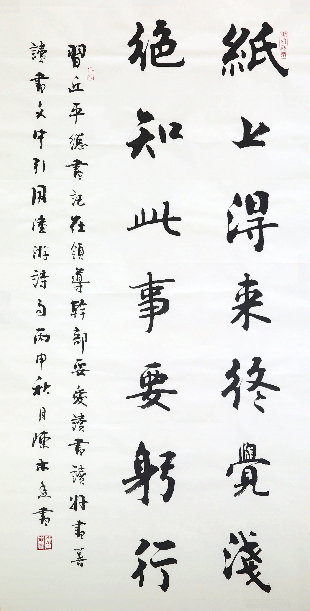 紙上得来終覺淺
絶知此事要躬行
習近平總書記在領導幹部要愛讀書讀好書善
讀書文中引用陸游詩句丙申秋月陳永書